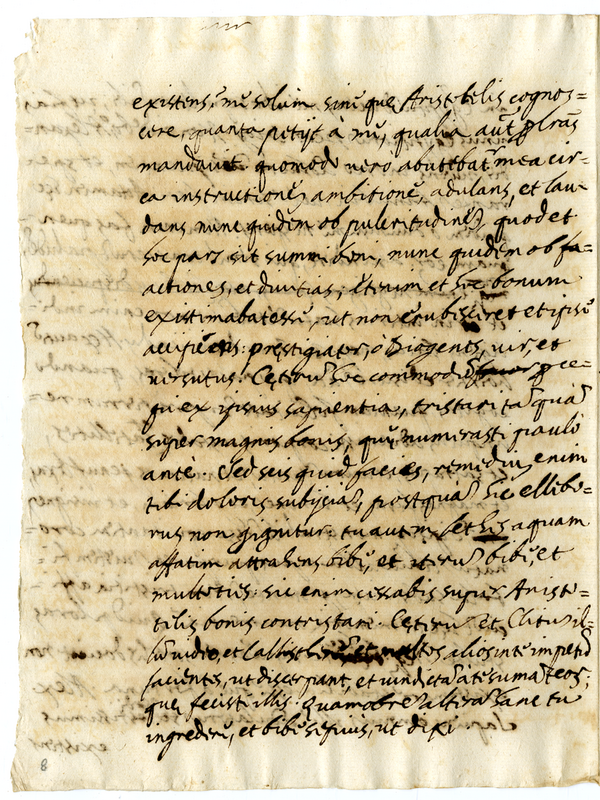 existens. mi solum sine que Aristotelis cognos=
cere, quanta petijt à me, qualia aut plras
mandavit. quomodo vero abutebat mea cir=
ca instructione, ambitione, adulans, et lau=
dans nunc quidem ob pulcritudine, quod et
hoc pars sit summi boni, nunc quidem ob fa=
actiones, et divitias, etenim et hoc bonum
existimabat esse, ut non erubisceret et ipse
accipiens. prestigiator, o Diogenes, vir, et
versutus. Ceteru hoc commodi perce=
pi ex ipsius sapientia, tristari ita qua
super magnis bonis, que numerasti paulo
ante. Sed scis quid facies, remediu enim
tibi doloris subijcia, postqua hic ellibo=
rus non gignitur. tu autem lethes aquam
affatim attrahens bibe, et iteru bibe, et
multoties. sic enim cessabis super Aristo=
telis bonis contristari. Ceteru et Clitu il=
lu video, et Callisthene et multos alios in te impetu
facientes, ut discerpant, et vindicta à te sumat eos;
que fecisti illis. Quamobre altera hanc tu
ingredere, et bibe sepius, ut dixi
8